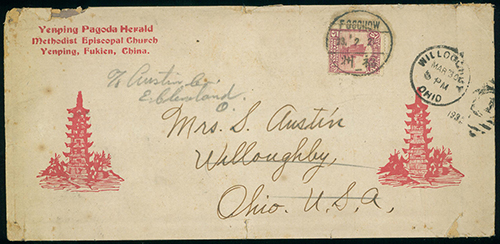 Yenping Pagoda Herald
Methodist Episcopal Church
Yenping, Fukien, China.
FOOCHOW
WILLOUGHBY
MAR
6 PM
OHIO
193
% Austin Co.
O.
Mrs. S. Austin
Willoughby
Ohio. U.S.A.